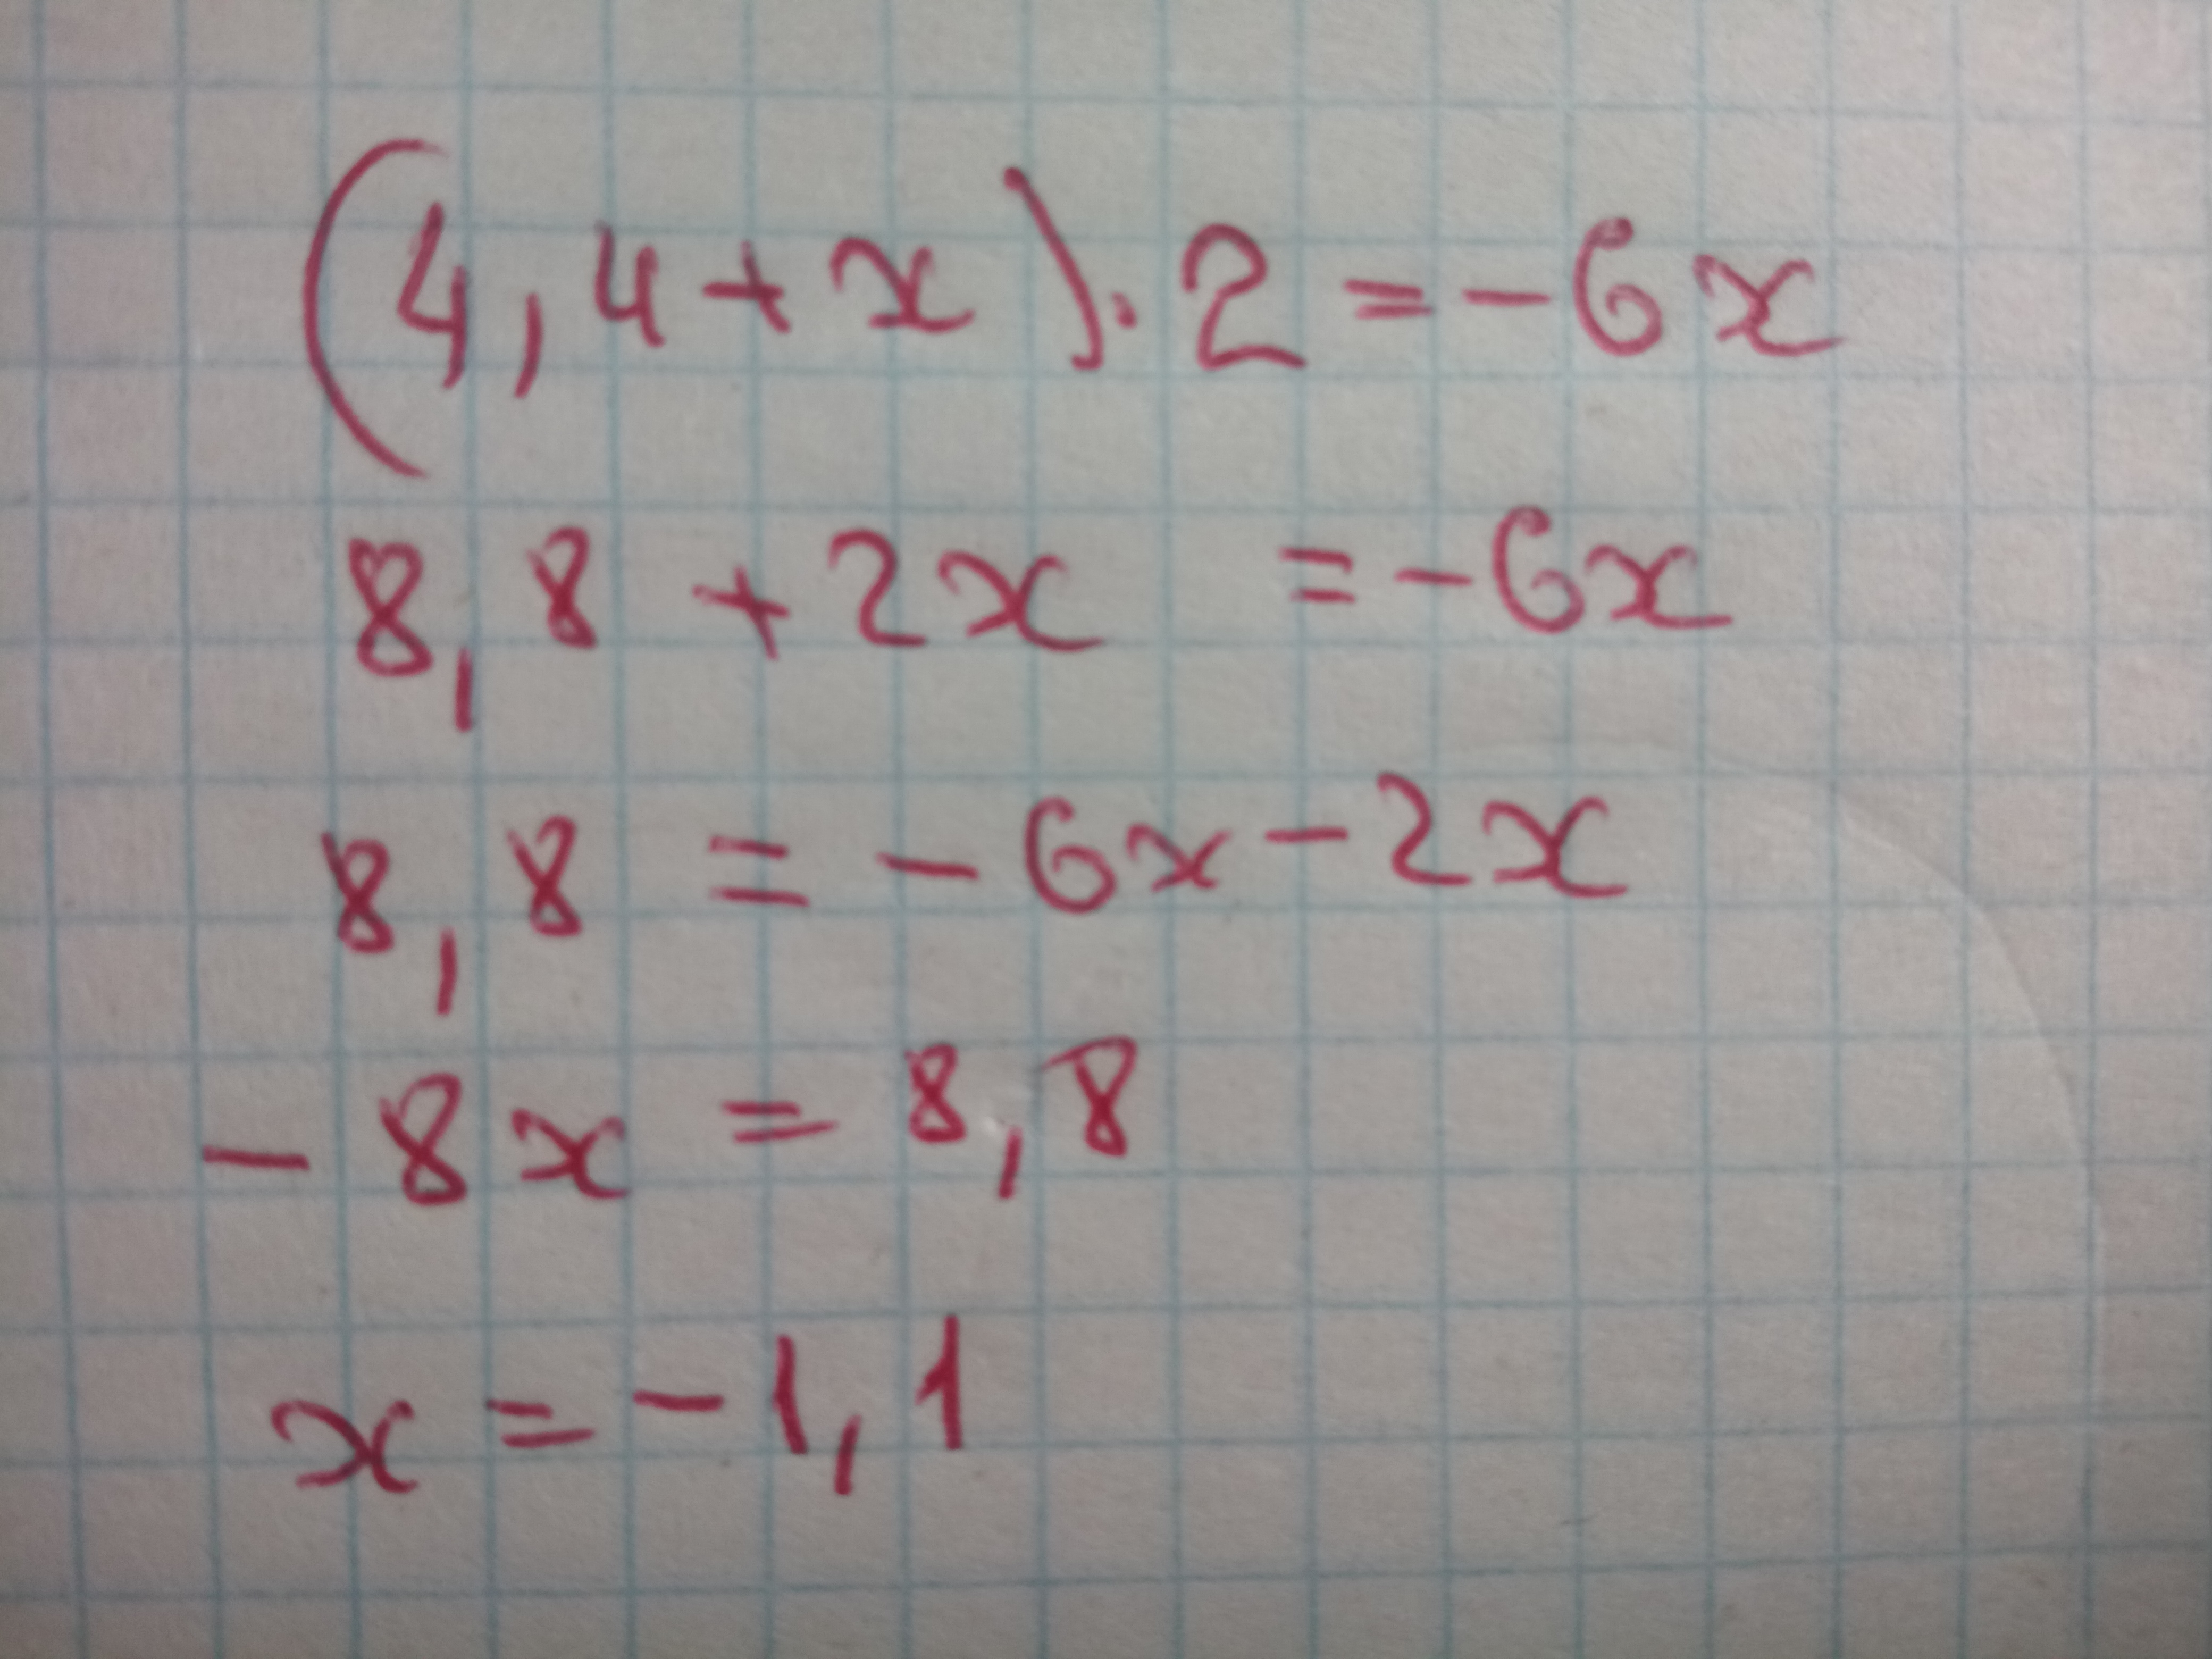 (4,4+x)·2=-6x
8,8+2x =-6x
8,8=-6x-2x
-8x=8,8
x=-1,1